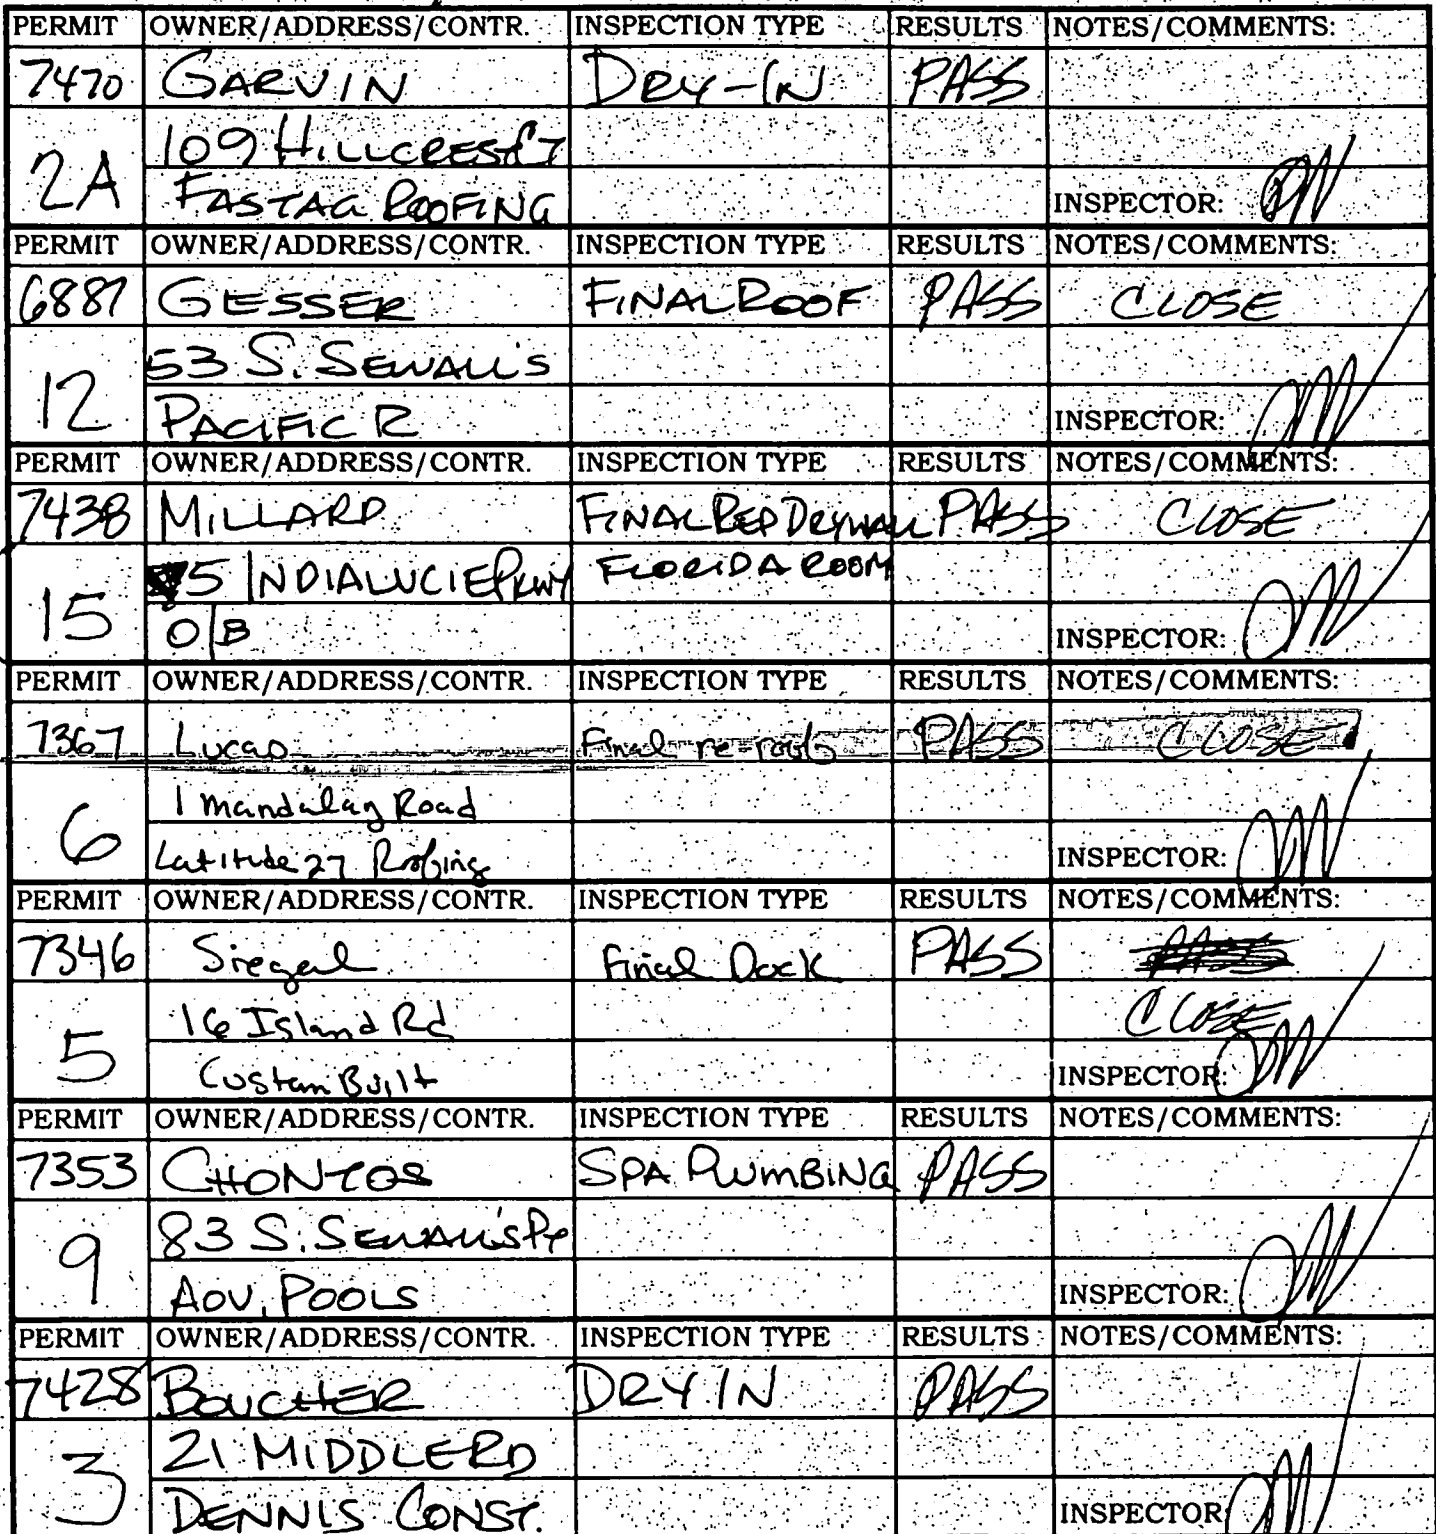 PERMIT OWNER/ADDRESS/CONTR. INSPECTION TYPE RESULTS NOTES/COMMENTS:
7470 GARVIN DRY-IN PASS
109 HILLCREST CT
2A
FASTAG ROOFING INSPECTOR:
PERMIT OWNER/ADDRESS/CONTR. INSPECTION TYPE RESULTS NOTES/COMMENTS:
6887 GESSER FINAL ROOF PASS CLOSE
53 S. SEWALL'S
12
PACIFIC R INSPECTOR:
PERMIT OWNER/ADDRESS/CONTR. INSPECTION TYPE RESULTS NOTES/COMMENTS:
7438 MILLARD FINAL REP DRYWALL PASS CLOSE
5 INDIALUCIE PKWY FLORIDA ROOM
15
O/B INSPECTOR:
PERMIT OWNER/ADDRESS/CONTR. INSPECTION TYPE RESULTS NOTES/COMMENTS:
7367 Lucas Final re-roof PASS CLOSE
1 Mandalay Road
6
Latitude 27 Roofing INSPECTOR:
PERMIT OWNER/ADDRESS/CONTR. INSPECTION TYPE RESULTS NOTES/COMMENTS:
7346 Siegel Final Dock PASS PASS
16 Island Rd CLOSE
5
Custom Built INSPECTOR:
PERMIT OWNER/ADDRESS/CONTR. INSPECTION TYPE RESULTS NOTES/COMMENTS:
7353 CHONTOS SPA PLUMBING PASS
83 S. SEWALL'S PT
9
ADV. POOLS INSPECTOR:
PERMIT OWNER/ADDRESS/CONTR. INSPECTION TYPE RESULTS NOTES/COMMENTS:
7428 BOUCHER DRY IN PASS
21 MIDDLE RD
3
DENNIS CONST. INSPECTOR